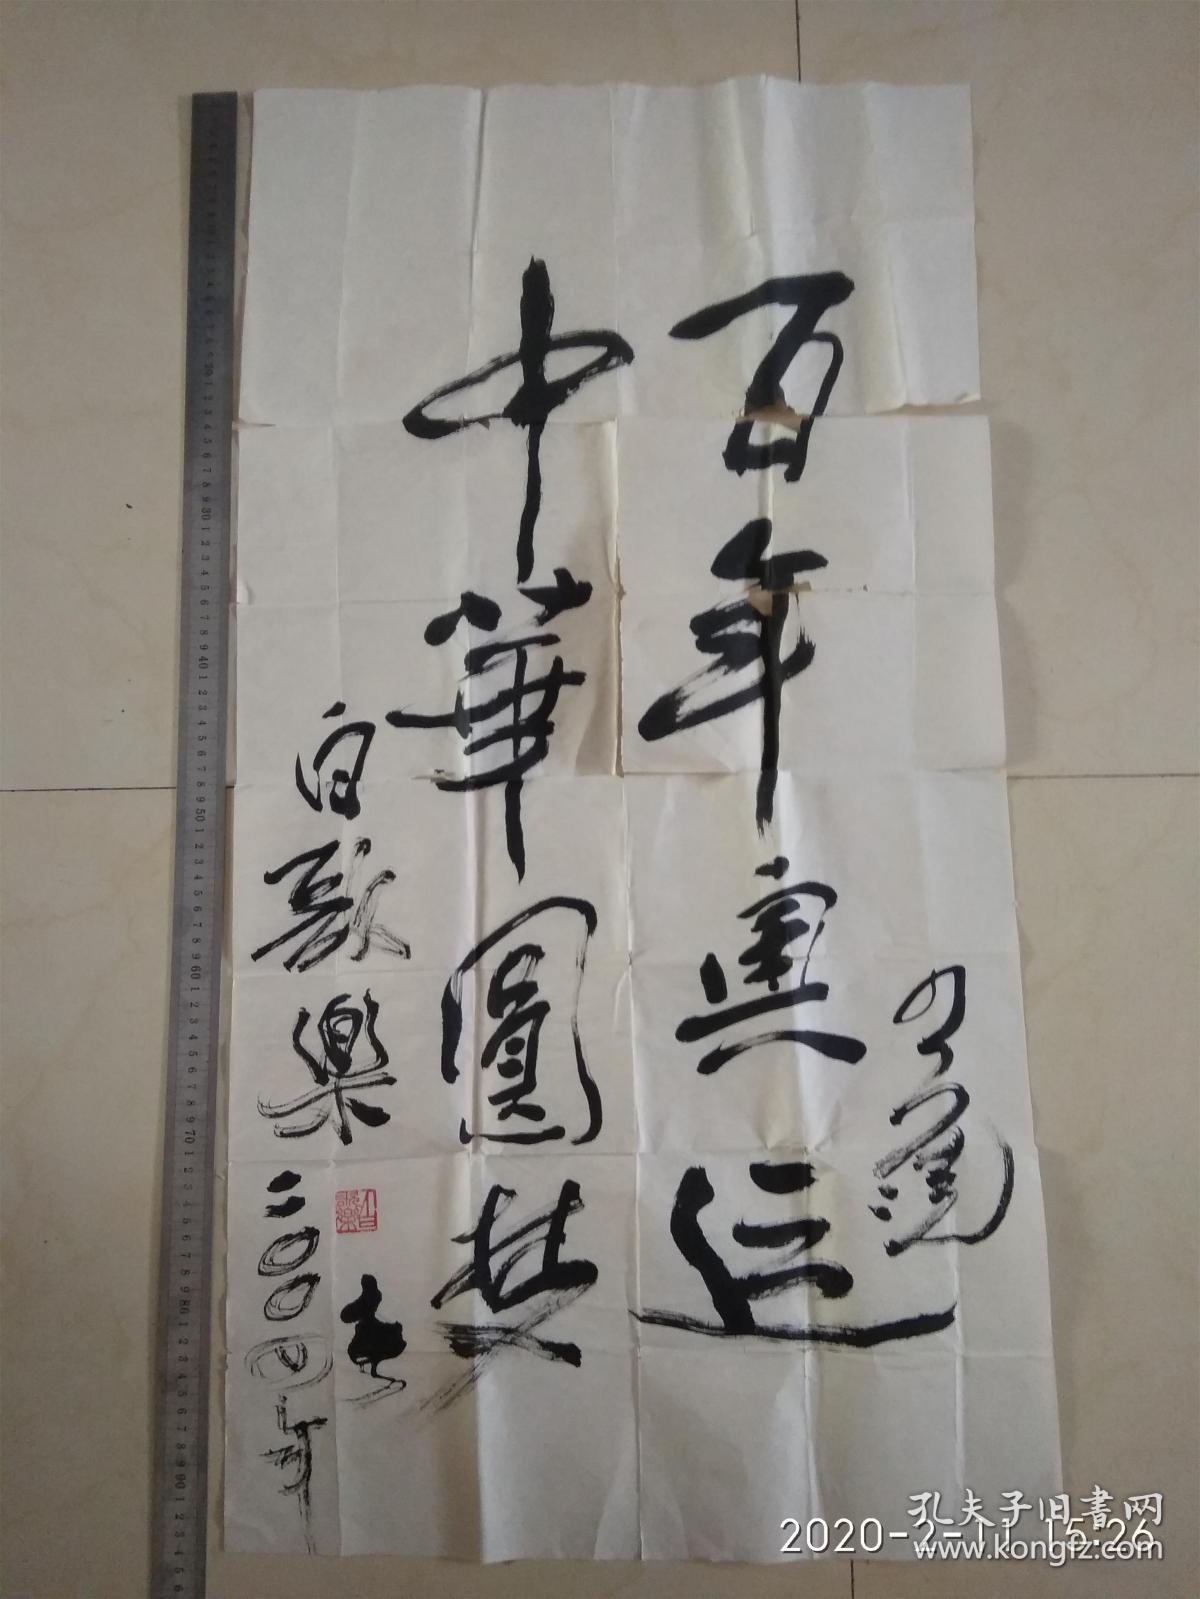 百年奥运
中华圆梦
白歌乐
二〇〇四年
春
2020-2-11 15:26
孔夫子旧書网
www.kongfz.com